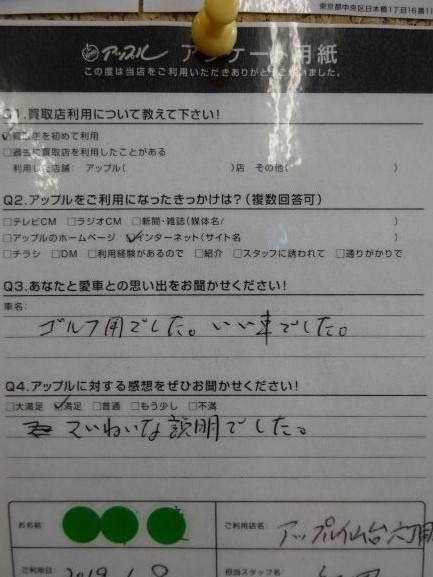 東京都中央区日本橋1丁目16番11
アップル アンケート用紙
この度は当店をご利用いただきありがとうございました。
Q1.買取店利用について教えて下さい!
買取店を初めて利用
□過去に買取店を利用したことがある
利用した店舗: アップル( )店 その他( )
Q2.アップルをご利用になったきっかけは?(複数回答可)
□テレビCM □ラジオCM □新聞・雑誌(媒体名/ )
□アップルのホームページ インターネット(サイト名 )
□チラシ □DM □利用経験があるので □紹介 □スタッフに誘われて □通りがかりで
Q3.あなたと愛車との思い出をお聞かせください!
車名:
ゴルフ用でした。いい車でした。
Q4.アップルに対する感想をぜひお聞かせください!
□大満足 満足 □普通 □もう少し □不満
ていねいな説明でした。
お名前
ご利用店名: アップル仙台六丁目
ご利用日: 2019 1 8
担当スタッフ名: